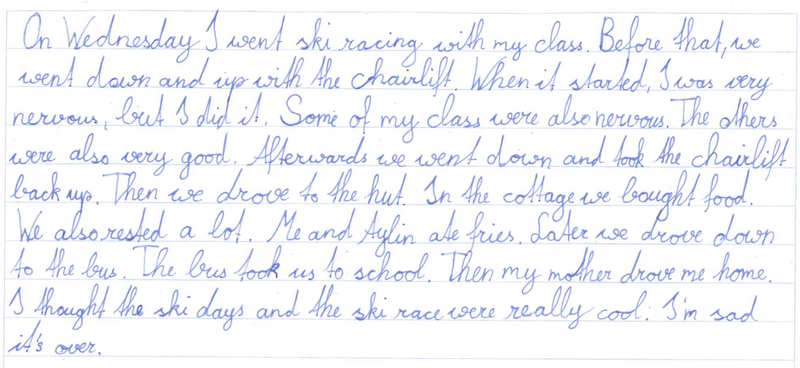 On Wednesday I went ski racing with my class. Before that, we
went down and up with the chairlift. When it started, I was very
nervous, but I did it. Some of my class were also nervous. The others
were also very good. Afterwards we went down and took the chairlift
back up. Then we drove to the hut. In the cottage we bought food.
We also rested a lot. Me and Aylin ate fries. Later we drove down
to the bus. The bus took us to school. Then my mother drove me home.
I thought the ski days and the ski race were really cool. I'm sad
it's over.